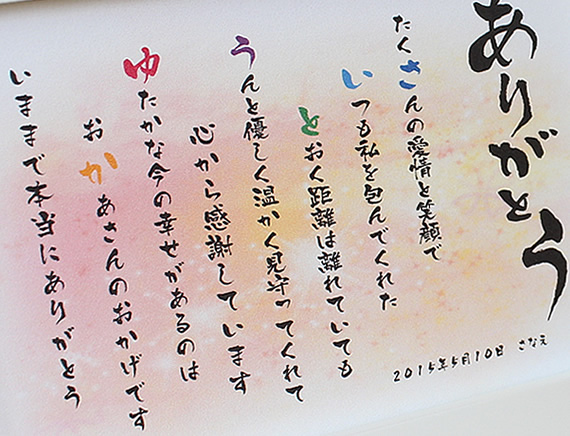 ありがとう
たくさんの愛情と笑顔で
いつも私を包んでくれた
とおく距離は離れていても
うんと優しく温かく見守ってくれて
心から感謝しています
ゆたかな今の幸せがあるのは
おかあさんのおかげです
いままで本当にありがとう
2015年5月10日 さなえ